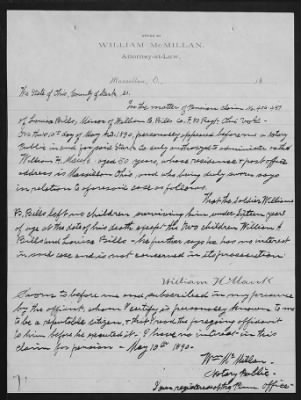 OFFICE OF
WILLIAM McMILLAN,
Attorney-at-Law.
Massillon, O. 18
The State of Ohio, County of Stark ss.
In the matter of Pension claim
of Louisa Bills, Minor of William B. Bills Co. F. Regt. Ohio
On this 10th day of May A.D. 1890, personally appeared before me a Notary
Public in and for said Stark Co duly authorized to administer oaths
William H. aged 50 years, whose residence & post office
address is Massillon Ohio, and who being duly sworn says
in relation to aforesaid case as follows.
That the soldier William
B. Bills left no children surviving him under sixteen years
of age at the date of his death except the two children William A
Bills and Louisa Bills - He further says he has no interest
in said case and is not concerned in its prosecution
William H
Sworn to before me and subscribed in my presence
by the affiant, whom I certify is personally known to me
to be a reputable citizen, & that I read the foregoing affidavit
to him before he executed it - I have no interest in this
claim for pension - May 10th 1890 -
Wm McMillan,
Notary Public.
I am registered at the Penn Office